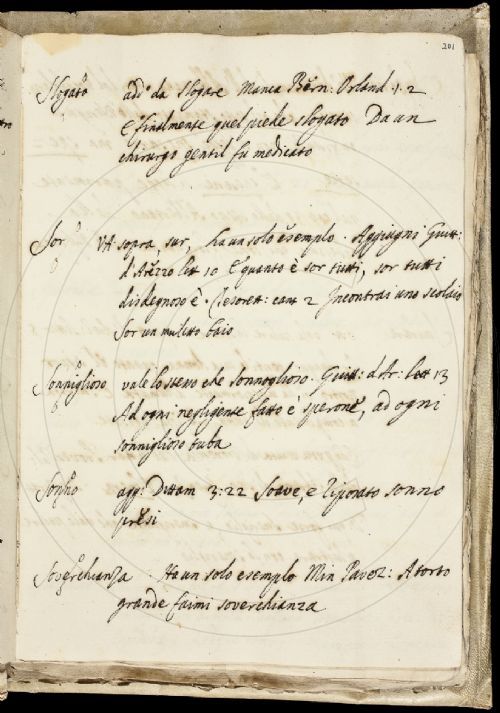 201
Slogato add:o da slogare Manca Bern: Orland · 1 · 2
E finalmente quel piede slogato Da un
chirurgo gentil fu medicato
Sor VA sopra, sur, ha un solo esempio · Aggiugni Guitt:
d'Arezzo lett 10 E quanto è sor tutti, sor tutti
disdegnoso è · Tesorett: cant 2 Incontrai uno scolaio
Sor un muletto baio
Sonniglioso vale lo stesso che sonnoglioso · Guitt: d Ar: lett 13
Ad ogni negligente fatto è sperone, ad ogni
sonniglioso tuba
Sonno agg: Dittam 3:22 Soave, e riposato sonno
presi
Soverchianza · Ha un solo esempio Min Pavez: A torto
grande faimi soverchianza